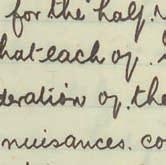 for the half
that each of
deration of the
nuisances. co